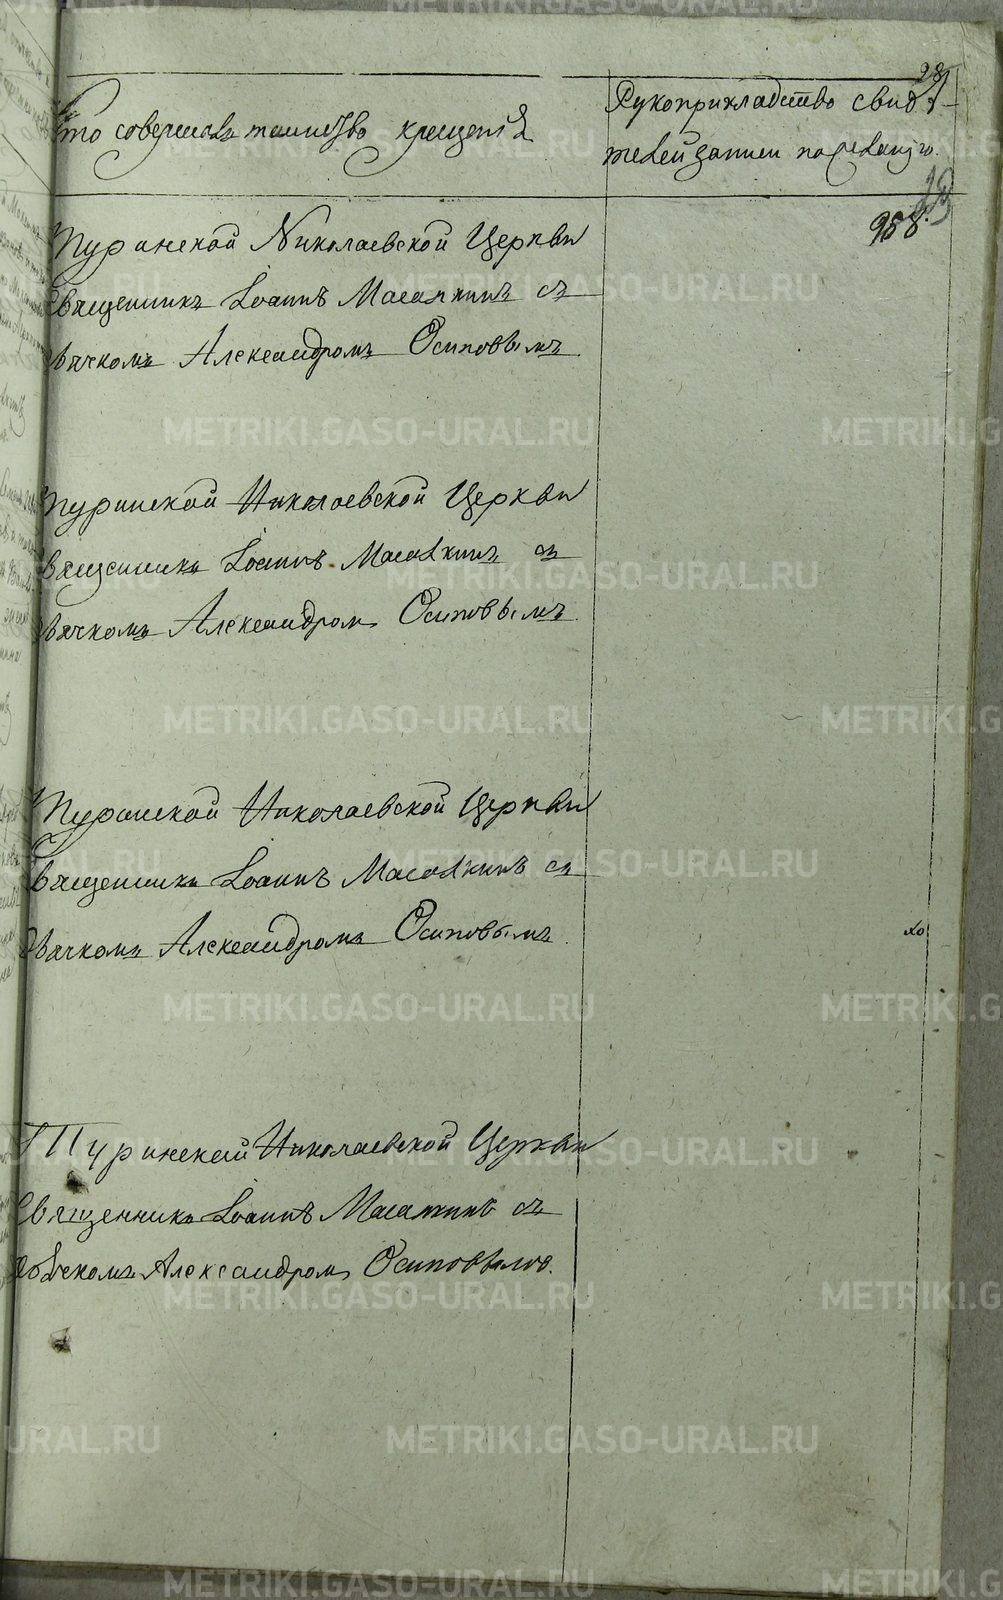 Кто совершалъ таинство крещенія
28
Рукоприкладство свидѣ-
телей записи по желанiю.
958.
Туринской Николаевской Церкви
Священникъ Iоаннъ Масалкинъ съ
дьячкомъ Александромъ Осиповымъ
Туринской Николаевской Церкви
Священникъ Iоаннъ Масалкинъ съ
дьячкомъ Александромъ Осиповымъ
Туринской Николаевской Церкви
Священникъ Iоаннъ Масалкинъ съ
дьячкомъ Александромъ Осиповымъ
Туринской Николаевской Церкви
Священникъ Iоаннъ Масалкинъ съ
дьячкомъ Александромъ Осиповымъ.
METRIKI.GASO-URAL.RU